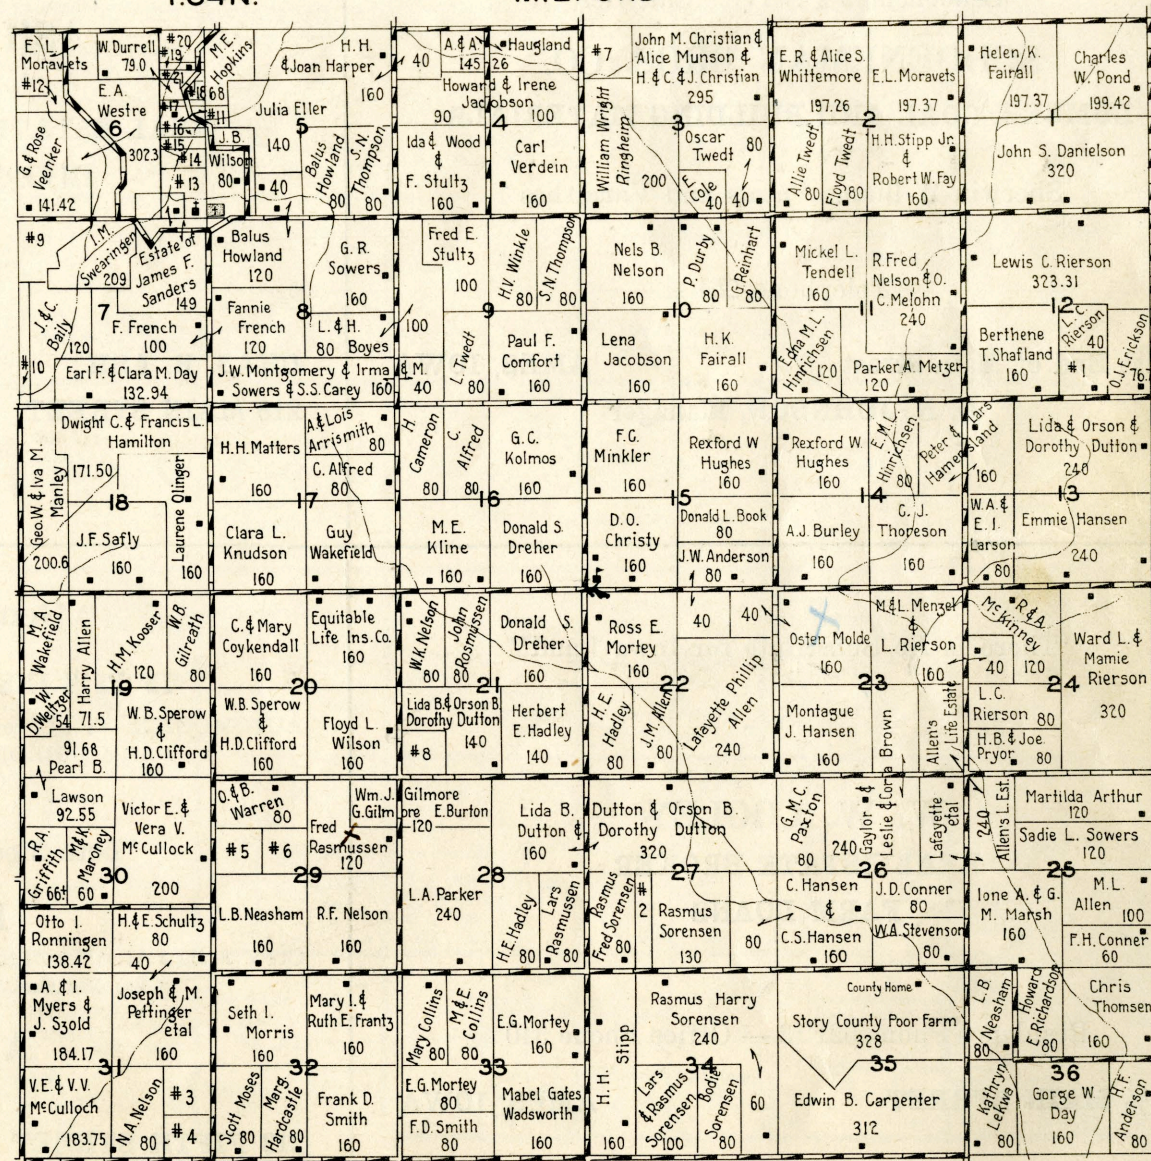 E. L.
Moravets
#12
W. Durrell
79.0
E. A.
Westre
6
302.3
G. & Rose
Veenker
141.42
#20
#19
#21
#18
#17
#16
#15
#14
#13
M.E.
Hopkins
68
#11
J.B.
Wilson
80
H. H.
& Joan Harper
160
Julia Eller
5
140
40
Balus
Howland
80
S.N.
Thompson
80
40
A. & A.
145
Haugland
26
Howard & Irene
Jacobson
90
4
100
Ida & Wood
&
F. Stultz
160
Carl
Verdein
160
#7
John M. Christian &
Alice Munson &
H. & C. & J. Christian
295
William Wright
Ringheim
200
3
Oscar
Twedt
80
E.
Cole
40
40
E. R. & Alice S.
Whittemore
197.26
E.L. Moravets
197.37
2
Allie Twedt
80
Floyd Twedt
80
H.H. Stipp Jr.
&
Robert W. Fay
160
Helen K.
Fairall
197.37
Charles
W. Pond
199.42
1
John S. Danielson
320
#9
I. M.
Swearingen
209
Estate of
James F.
Sanders
149
7
J. & C.
Baily
120
F. French
100
#10
Earl F. & Clara M. Day
132.94
Balus
Howland
120
G. R.
Sowers
160
8
Fannie
French
120
L. & H.
80 Boyes
J.W. Montgomery & Irma & M.
Sowers & S.S. Carey 160
40
Fred E.
Stultz
100
H.V. Winkle
80
S.N. Thompson
80
9
100
L. Twedt
80
Paul F.
Comfort
160
Nels B.
Nelson
160
P. Durby
80
G. Reinhart
80
10
Lena
Jacobson
160
H. K.
Fairall
160
Mickel L.
Tendell
160
R. Fred
Nelson & O.
C. Melohn
240
11
Edna M.L.
Hinrichsen
120
Parker A. Metzer
120
Lewis C. Rierson
323.31
12
Berthene
T. Shafland
160
L. C.
Rierson
40
#1
O.J. Erickson
Dwight C. & Francis L.
Hamilton
171.50
Geo. W. & Iva M.
Manley
200.6
18
J.F. Safly
160
Laurene Olinger
160
H.H. Matters
160
A & Lois
Arrismith
80
C. Alfred
80
17
Clara L.
Knudson
160
Guy
Wakefield
160
H.
Cameron
80
C.
Alfred
80
G. C.
Kolmos
160
16
M. E.
Kline
160
Donald S.
Dreher
160
F.C.
Minkler
160
Rexford W
Hughes
160
15
D. O.
Christy
160
Donald L. Book
80
J.W. Anderson
80
Rexford W.
Hughes
160
E. M. L.
Hinrichsen
80
Peter & Lars
Hamersland
160
14
A.J. Burley
160
Thoreson
160
Lida & Orson &
Dorothy Dutton
240
13
W. A &
E. I.
Larson
80
Emmie Hansen
240
M. A.
Wakefield
Harry Allen
71.5
H.M. Kooser
120
W.B.
Gilreath
80
19
D.W.
Weltzer
54
W. B. Sperow
&
H.D. Clifford
160
91.68
Pearl B.
C. & Mary
Coykendall
160
Equitable
Life Ins. Co.
160
20
W.B. Sperow
&
H.D. Clifford
160
Floyd L.
Wilson
160
W.K. Nelson
80
John
Rosmussen
80
Donald S.
Dreher
160
21
Lida B. & Orson B.
Dorothy Dutton
140
#8
Herbert
E. Hadley
140
Ross E.
Mortey
160
40
40
22
H. E.
Hadley
80
J.M. Allen
80
Lafayette Phillip
Allen
240
Osten Molde
160
M. & L. Menzel
&
L. Rierson
160
23
Montague
J. Hansen
160
Allen's
Life Estate
R. & A.
McKinney
40
120
Ward L. &
Mamie
Rierson
320
24
L.C.
Rierson 80
H.B. & Joe
Pryor 80
Lawson
92.55
Victor E. &
Vera V.
McCullock
200
R.A.
Griffith
M & K
Maroney
60
30
Otto I.
Ronningen
138.42
H. & E. Schultz
80
40
O. & B.
Warren
80
#5
#6
Fred
Rasmussen
120
Wm. J.
G. Gilmore
29
L.B. Neasham
160
R.F. Nelson
160
Gilmore
E. Burton
120
Lida B.
Dutton &
160
28
L.A. Parker
240
H.E. Hadley
80
Lars
Rasmussen
80
Dutton & Orson B.
Dorothy Dutton
320
27
Rasmus
Fred Sorensen
80
#
2
Rasmus
Sorensen
130
80
G. M. C.
Paxton
80
Gaylor &
Leslie & Cora Brown
240
Lafayette
etal
26
C. Hansen
&
C.S. Hansen
160
J.D. Conner
80
W.A. Stevenson
80
240
Allen's L. Est.
Martilda Arthur
120
Sadie L. Sowers
120
25
Ione A. & G.
M. Marsh
160
M.L.
Allen
100
F.H. Conner
60
A. & I.
Myers &
J. Szold
184.17
Joseph & M.
Pettinger
etal
160
31
V.E. & V.V.
McCulloch
183.75
N.A. Nelson
80
#3
#4
Seth I.
Morris
160
Mary I. &
Ruth E. Frantz
160
32
Scott Moses
80
Mars.
Hardcastle
80
Frank D.
Smith
160
Mary Collins
80
M & E.
Collins
80
E.G. Mortey
160
33
E.G. Mortey
80
F.D. Smith
80
Mabel Gates
Wadsworth
160
H. H. Stipp
160
Rasmus Harry
Sorensen
240
34
Lars
& Rasmus
Sorensen
100
Bodie
Sorensen
80
60
County Home
Story County Poor Farm
328
35
Edwin B. Carpenter
312
L. B.
Neasham
80
Howard
E. Richardson
80
Chris
Thomsen
160
36
Kathryn
Lekwa
80
Gorge W.
Day
160
H. F.
Anderson
80